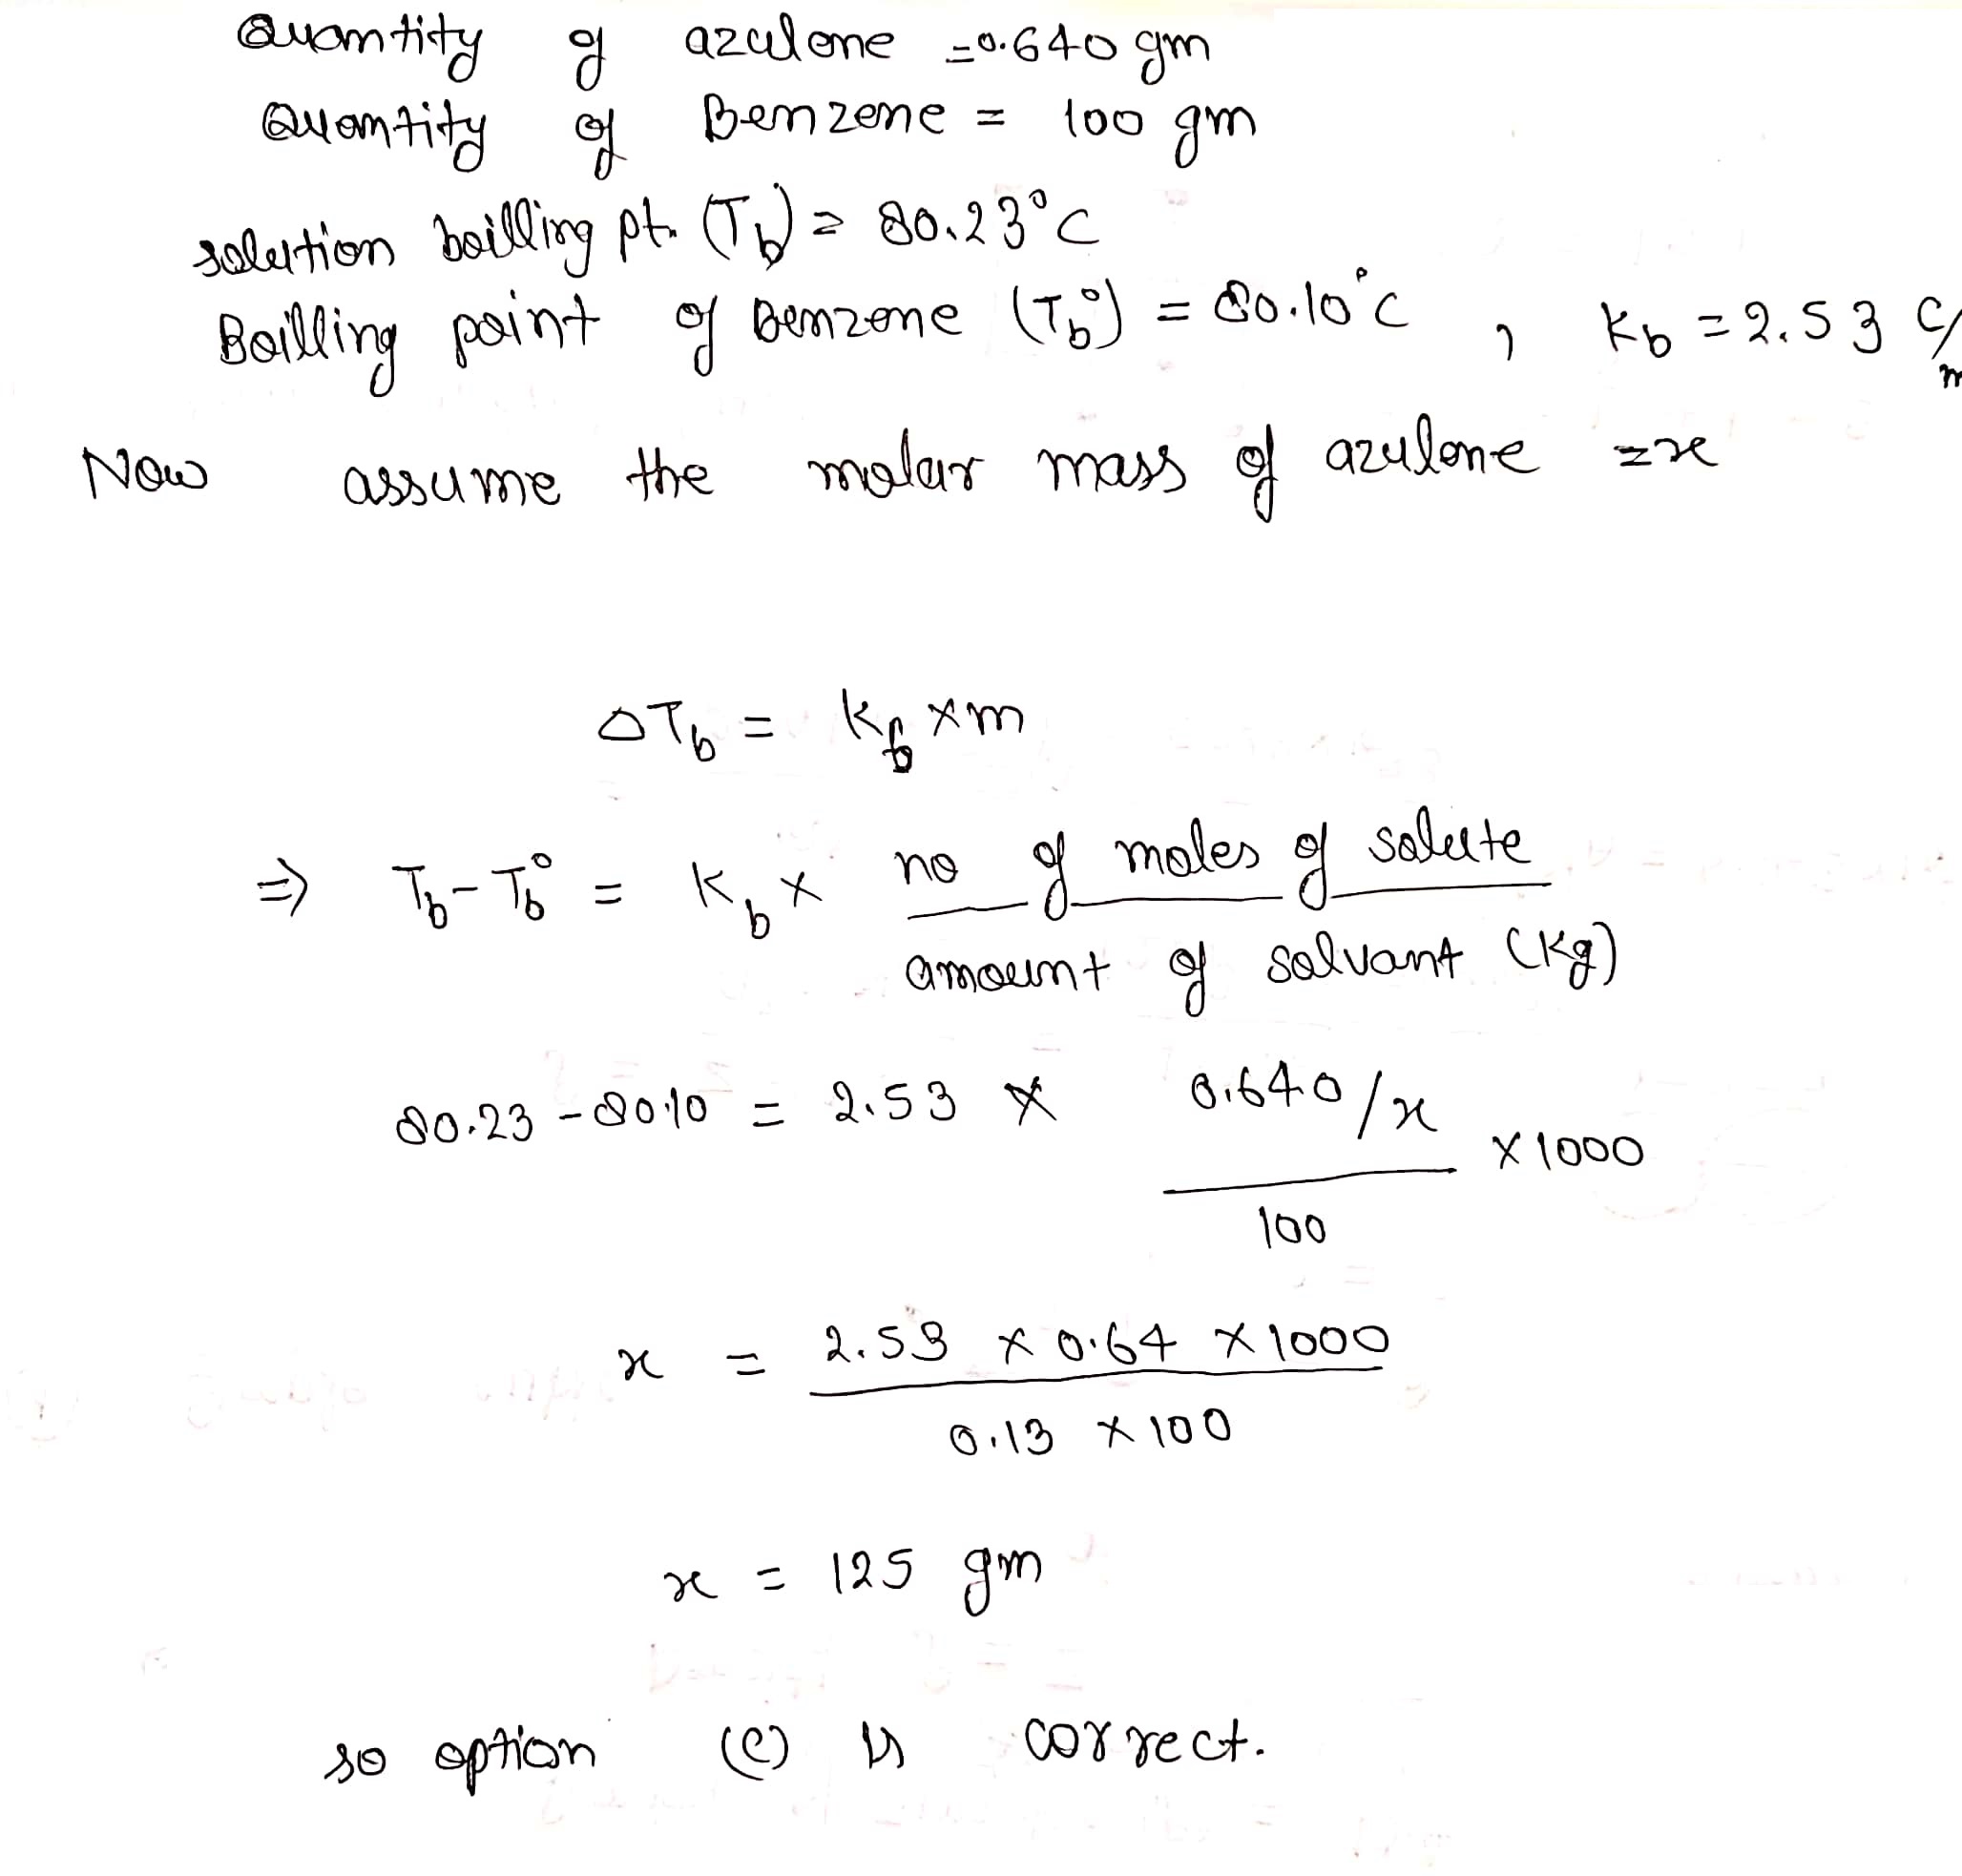 Quantity of azulene = 0.640 gm
Quantity of Benzene = 100 gm
solution boilling pt. (Tb) = 80.23°C
Boilling point of Benzene (Tb°) = 80.10°C , Kb = 2.53 C/m
Now assume the molar mass of azulene = x
ΔTb = Kb × m
⇒ Tb - Tb° = Kb × no of moles of solute
amount of solvant (Kg)
80.23 - 80.10 = 2.53 × 0.640/x × 1000
100
x = 2.53 × 0.64 × 1000
0.13 × 100
x = 125 gm
so option (C) is correct.